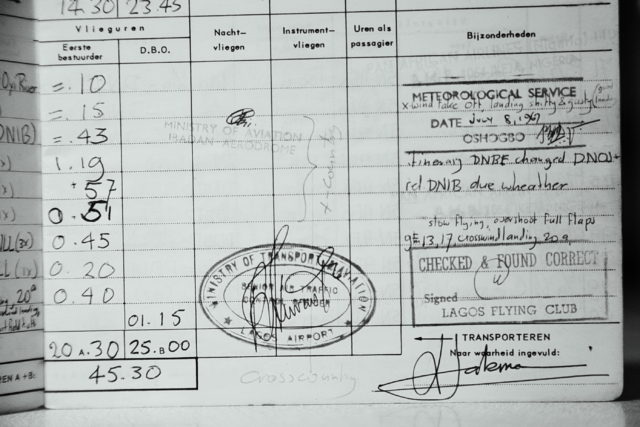 14.30 23.45
Vlieguren
Eerste bestuurder
D.B.O.
Nacht-vliegen
Instrument-vliegen
Uren als passagier
Bijzonderheden
=.10
=.15
DNIB) =.43
1.19
57
0.51
0.45
0.20
20 0.40
01.15
20 A.30 25.B00
EN A + B: 45.30
MINISTRY OF AVIATION
IBADAN AERODROME
X-Country
MINISTRY OF TRANSPORT AVIATION
SENIOR AIR TRAFFIC
LAGOS AIRPORT
Crosscountry
METEOROLOGICAL SERVICE
x-wind take off, landing shifty & gusty
DATE July 8, 1967
OSHOGBO
itinerary DNBE changed DNOJ +
rel DNIB due wheather
slow flying, overshoot full flaps
ge 13, 17, crosswind landing 20
CHECKED & FOUND CORRECT
Signed
LAGOS FLYING CLUB
TRANSPORTEREN
Naar waarheid ingevuld: